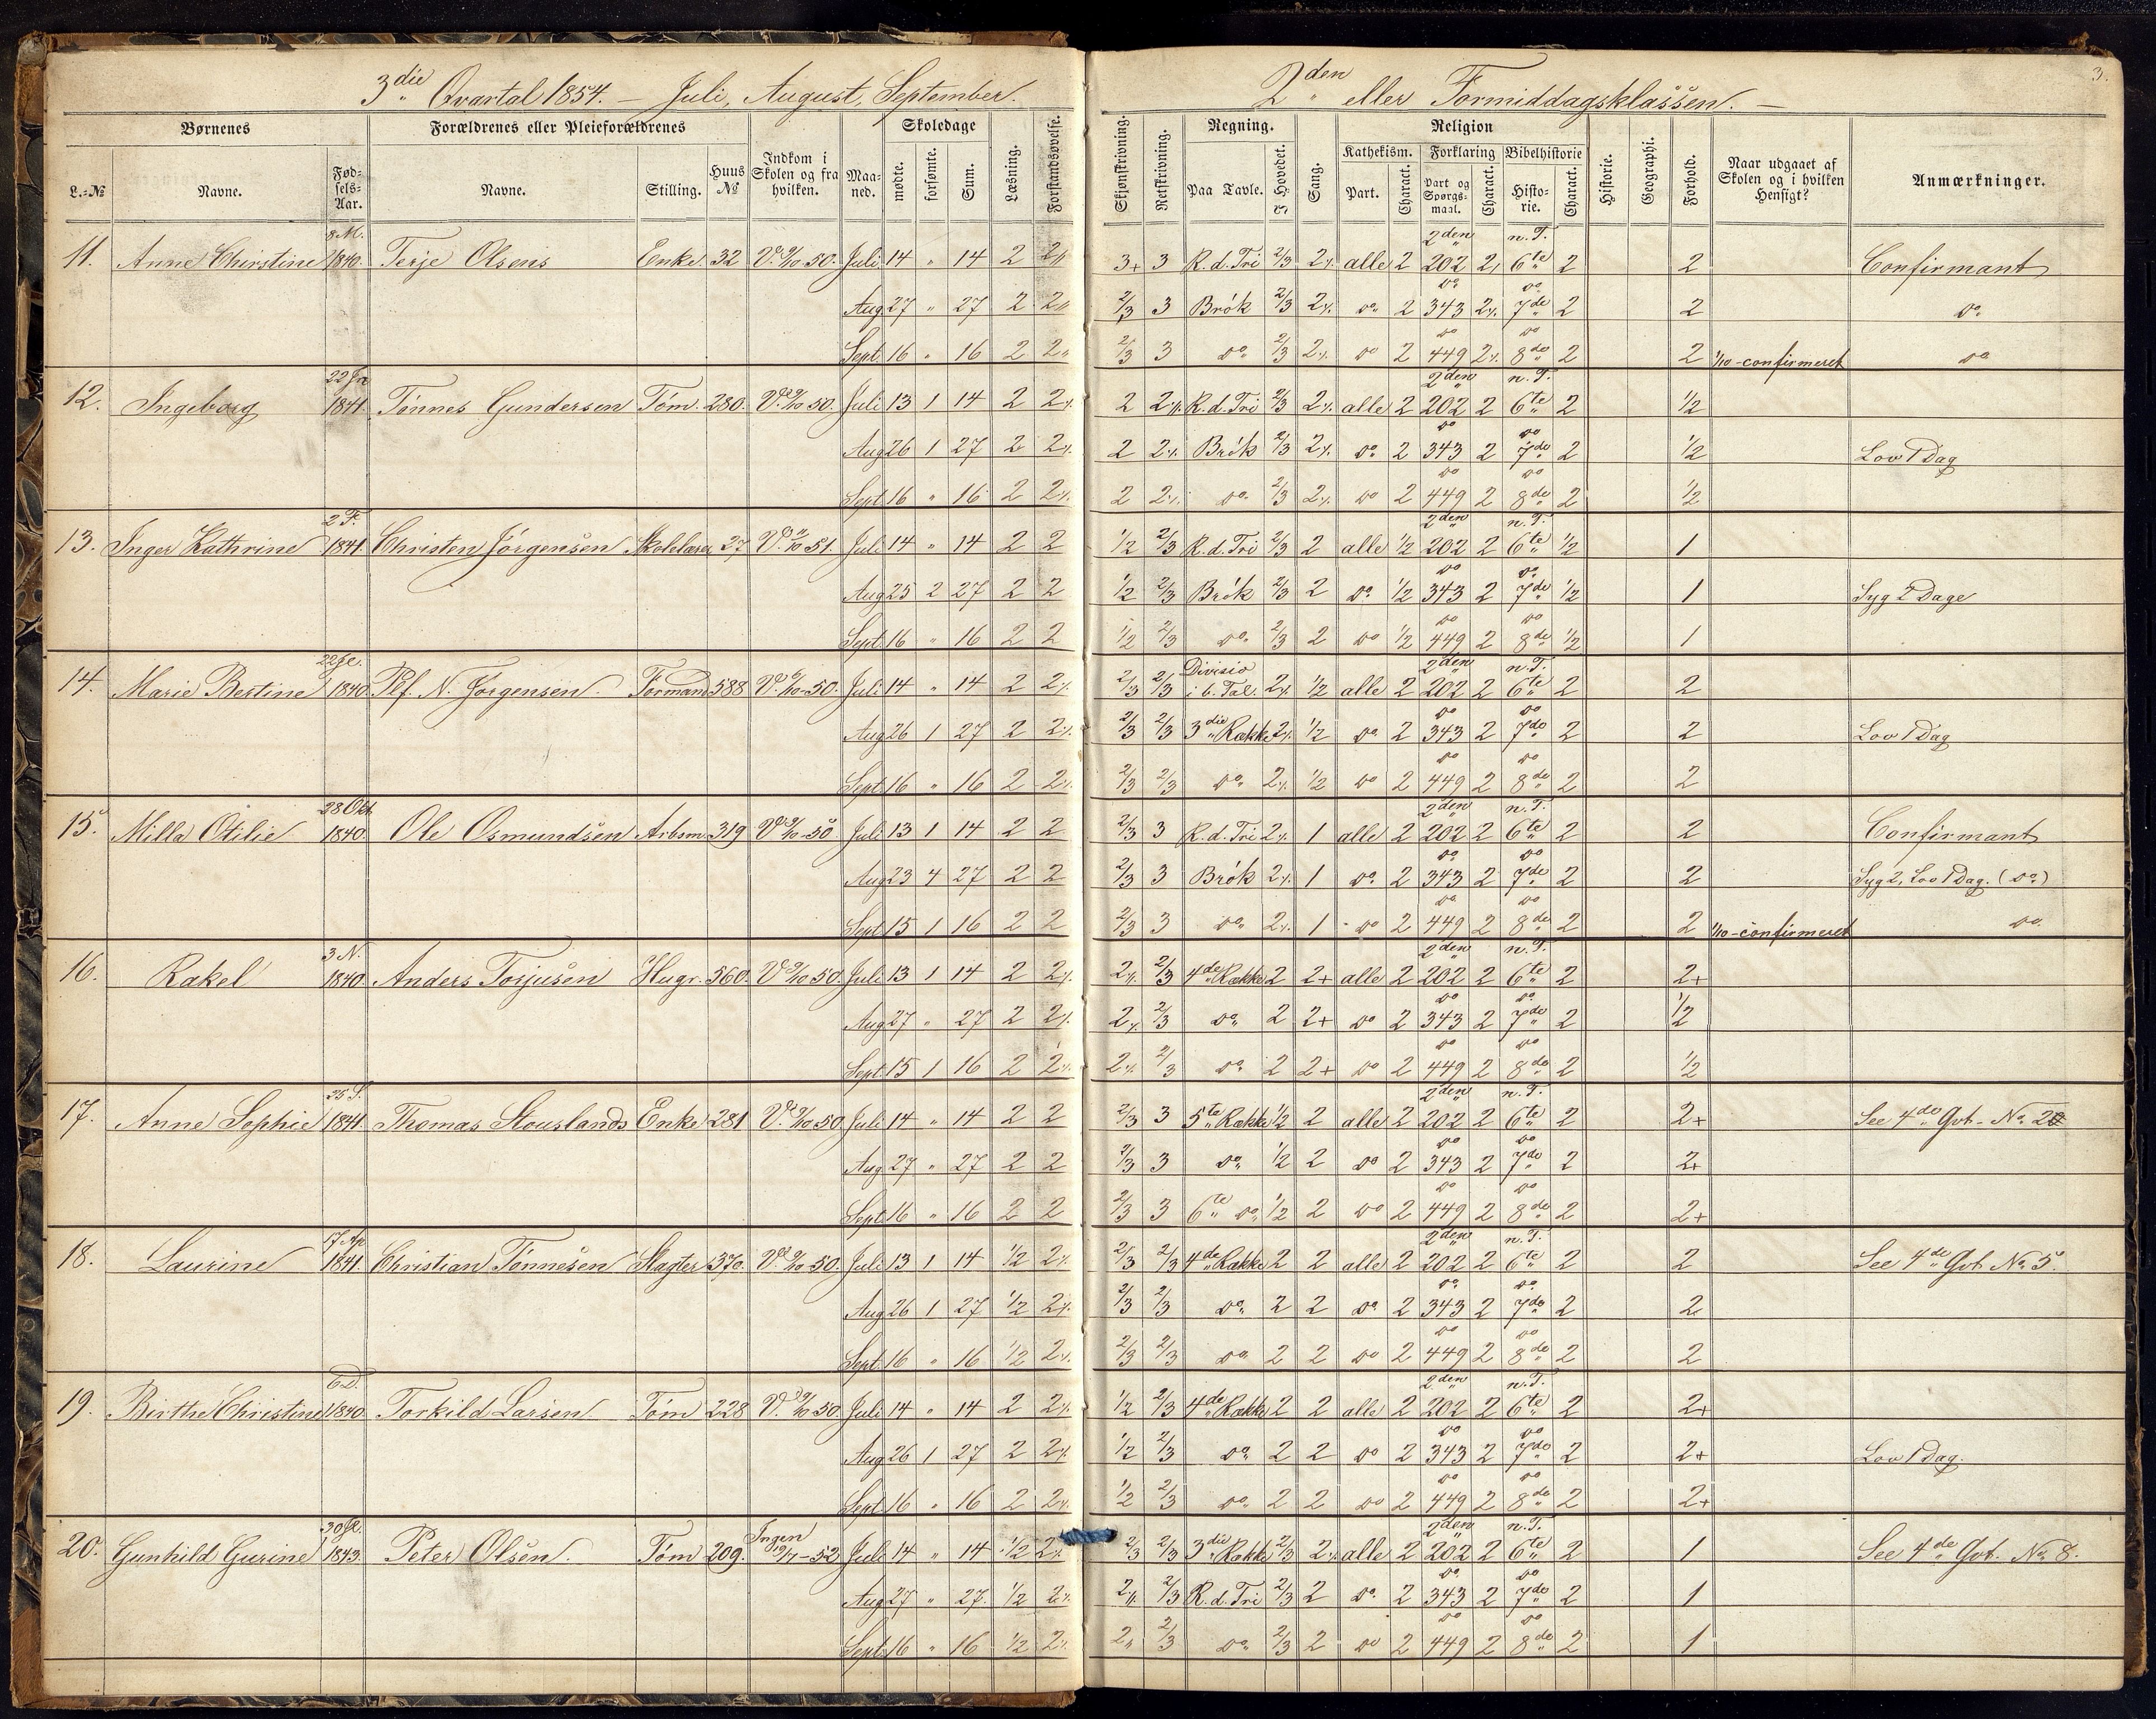 3die Qvartal 1854. — Juli, August, September.
2den eller Formiddagsklassen. —
3.
Børnenes | Forældrenes eller Pleieforældrenes | Indkom i Skolen og fra hvilken. | Skoledage | Læsning. | Forstandsøvelse. | Skjønskrivning. | Retskrivning. | Regning. | Sang. | Religion | Historie. | Geographi. | Forhold. | Naar udgaaet af Skolen og i hvilken Hensigt? | Anmærkninger.
L.-№ | Navne. | Fødsels-Aar. | Navne. | Stilling. | Huus № | Maaned. | mødte. | forsømte. | Sum. | Paa Tavle. | I Hovedet. | Kathekism. | Forklaring | Bibelhistorie
Part. | Charact. | Part og Spørgsmaal. | Charact. | Historie. | Charact.
11. Anne Chirstine 8 M. 1840. Terje Olsens Enke 32 Juli 14 " 14 2 3+ 3 R. d. Tri 2/3 alle 2 2den 202 n. T. 6te 2 2 Confirmant
Aug 27 " 27 2 2/3 3 Brök 2/3 do 2 do 343 do 7de 2 2 do
Sept 16 " 16 2 2/3 3 do 2/3 do 2 do 449 do 8de 2 2 1/10 - confirmeret do
12. Ingeborg 1841. Tönnes Gundersen Töm. 280. Juli 13 1 14 2 2 R. d. Tri 2/3 alle 2 2den 202 2 n. T. 6te 2 1/2
Aug 26 1 27 2 2 Brök 2/3 do 2 do 343 2 do 7de 2 1/2 Lov 1 Dag
Sept 16 " 16 2 2 do 2/3 do 2 do 449 2 do 8de 2 1/2
13. Inger Kathrine 2 F. 1841. Christen Jörgensen Skolelærer 27 Juli 14 " 14 2 2 1/2 2/3 R. d. Tri 2/3 2 alle 1/2 2den 202 2 n. T. 6te 1/2 1
Aug 25 2 27 2 2 1/2 2/3 Brök 2/3 2 do 1/2 do 343 2 do 7de 1/2 1 Syg 2 Dage
Sept 16 " 16 2 2 1/2 2/3 do 2/3 2 do 1/2 do 449 2 do 8de 1/2 1
14. Marie Bertine 1840. Plf. N. Jörgensen. Formand 588 Juli 14 " 14 2 2/3 2/3 Divisio i b. Tal. 1/2 alle 2 2den 202 2 n. T. 6te 2 2
Aug 26 1 27 2 2/3 2/3 3die Række 1/2 do 2 do 343 2 do 7de 2 2 Lov 1 Dag
Sept 16 " 16 2 2/3 2/3 do 1/2 do 2 do 449 2 do 8de 2 2
15. Milla Otilie 28 Okt 1840. Ole Osmundsen Arbsm. 319 Juli 13 1 14 2 2 2/3 3 R. d. Tri 1 alle 2 2den 202 2 n. T. 6te 2 2 Confirmant
Aug 23 4 27 2 2 2/3 3 Brök 1 do 2 do 343 2 do 7de 2 2 Syg 2, Lov 1 Dag. (do)
Sept 15 1 16 2 2 2/3 3 do 1 do 2 do 449 2 do 8de 2 2 1/10 - confirmeret do
16. Rakel 3 N. 1840. Anders Torjusen Hugr. 560. Juli 13 1 14 2 2/3 4de Række 2 2+ alle 2 2den 202 2 n. T. 6te 2 2+
Aug 27 " 27 2 2/3 do 2 2+ do 2 do 343 2 do 7de 2 1/2
Sept 15 1 16 2 2/3 do 2 2+ do 2 do 449 2 do 8de 2 1/2
17. Anne Sophie 25 S. 1841. Thomas Stouslands Enke 281 Juli 14 " 14 2 2 2/3 3 5te Række 1/2 2 alle 2 2den 202 2 n. T. 6te 2 2+ See 4de Qvt.
Aug 27 " 27 2 2 2/3 3 do 1/2 2 do 2 do 343 2 do 7de 2 2+
Sept 16 " 16 2 2 2/3 3 6te do 1/2 2 do 2 do 449 2 do 8de 2 2+
18. Laurine 17 Ap 1841. Christian Tönnesen Slagter 370. Juli 13 1 14 1/2 2/3 2/3 4de Række 2 2 alle 2 2den 202 2 n. T. 6te 2 2 See 4de Qvt No 5.
Aug 26 1 27 1/2 2/3 2/3 do 2 2 do 2 do 343 2 do 7de 2 2
Sept 16 " 16 1/2 2/3 2/3 do 2 2 do 2 do 449 2 do 8de 2 2
19. Birthe Christine 6 D. 1840. Torkild Larsen Töm 228 Juli 14 " 14 2 1/2 2/3 4de Række 2 2 alle 2 2den 202 2 n. T. 6te 2 2+
Aug 26 1 27 2 1/2 2/3 do 2 2 do 2 do 343 2 do 7de 2 2+ Lov 1 Dag.
Sept 16 " 16 2 1/2 2/3 do 2 2 do 2 do 449 2 do 8de 2 2+
20. Gunhild Gurine 1843. Peter Olsen. Töm 209. Ingen Juli 14 " 14 1/2 2/3 2/3 3die Række 2/3 alle 2 2den 202 2 n. T. 6te 2 1 See 4de Qvt. No 8.
Aug 27 " 27. 1/2 2/3 R. d. Tri 2/3 2 do 2 do 343 2 do 7de 2 1
Sept 16 " 16 1/2 2/3 do 2/3 2 do 2 do 449 2 do 8de 2 1